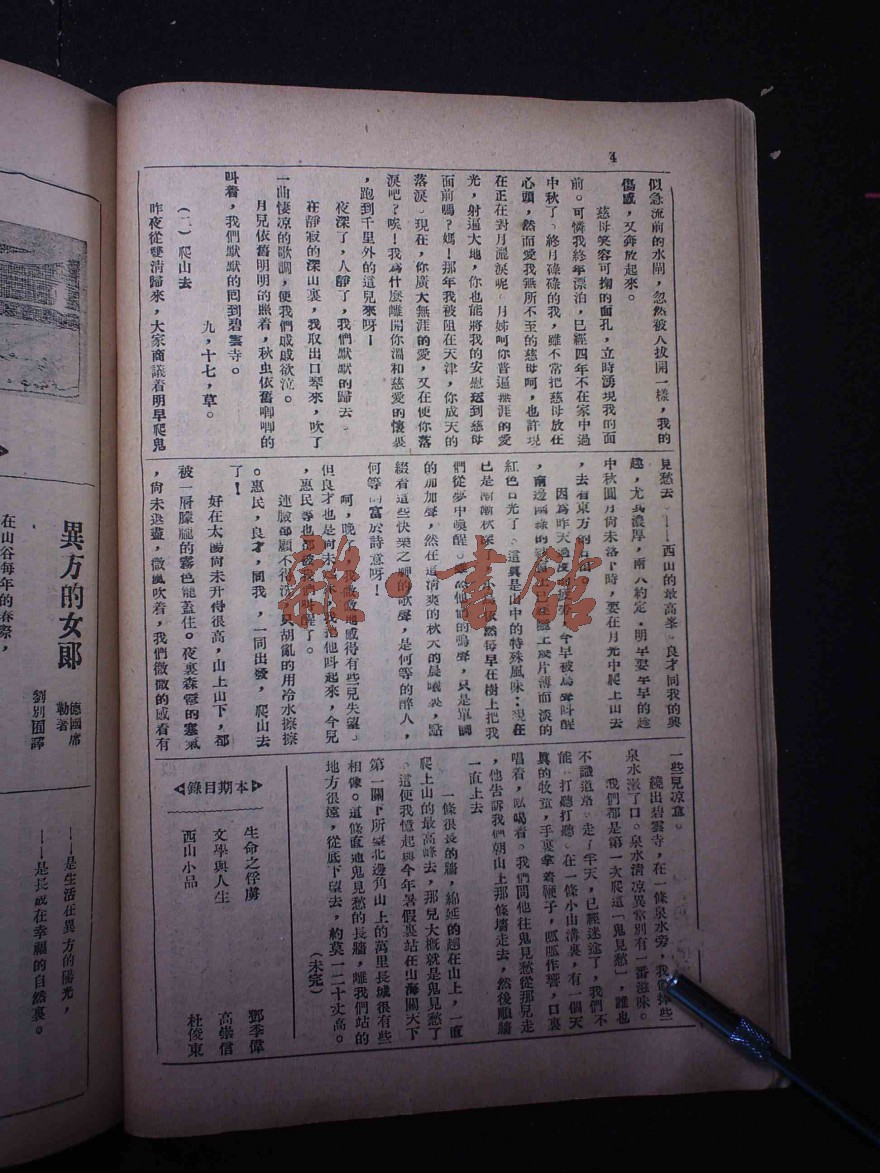 4
似急流前的水閘，忽然被人拔開一樣，我的
傷感，又奔放起來。
慈母笑容可掬的面孔，立時湧現我的面
前。可憐我終年漂泊，已經四年不在家中過
中秋了。終月碌碌的我，雖不常把慈母放在
心頭，然而愛我無所不至的慈母呵，也許現
在正在對月灑淚呢。月姊呵你普逼無涯的愛
光，射逼大地，你也能將我的安慰送到慈母
面前嗎？媽！那年我被阻在天津，你成天的
落淚。現在，你廣大無涯的愛，又在使你落
淚吧？唉！我為什麼離開你溫和慈愛的懷裏
，跑到千里外的這兒來呀！
夜深了，人靜了，我們默默的歸去。
在靜寂的深山裏，我取出口琴來，吹了
一曲悽凉的歌調，使我們戚戚欲泣。
月兒依舊明明的照着，秋虫依舊唧唧的
叫着，我們默默的囘到碧雲寺。
九，十七，草。
（二）爬山去
昨夜從雙清歸來，大家商議着明早爬鬼
見愁去。——西山的最高峯。良才同我的興
趣，尤其濃厚，兩人約定，明早要早早的趁
中秋圓月尙未落下時，要在月光中爬上山去
，去看東方的
因為昨天過度的疲勞，今早被鳥聲叫醒
，南邊
紅色日光了。這眞是山中的特殊風味：現在
已是漸漸秋深 依然每早在樹上把我
們從夢中喚醒。雖然他們的鳴聲，只是單調
的加加聲，然在這清爽的秋天的晨曦裏，點
綴着這些快樂之神的歌聲，是何等的醉人，
何等的富於詩意呀！
呵，晚了！我微微地感得有些兒失望。
但良才也是尙未起來 他叫起來，今兒
，惠民等也都被我們叫醒了。
連臉都顧不得洗，只胡亂的用冷水擦擦
。惠民，良才，同我，一同出發，爬山去
了！
好在太陽尙未升得很高，山上山下，都
被一層朦朧的霧色籠蓋住。夜裏森嚴的寒氣
，尙未退盡，微風吹着，我們微微的感着有
一些兒凉意。
繞出碧雲寺，在一條泉水旁，我們捧些
泉水漱了口。泉水清凉異常別有一番滋味。
我們都是第一次爬這「鬼見愁」，誰也
不識道路。走了半天，已經迷途了，我們不
能 打聽打聽。在一條小山溝裏，有一個天
眞的牧童，手裏拿着鞭子，呱呱作響，口裏
唱着，吆喝着。我們問他往鬼見愁從那兒走
，他告訴我們朝山上那條墻走去，然後順牆
一直上去
一條很長的牆，綿延的趙在山上，一直
爬上山的最高峰去，那兒大概就是鬼見愁了
。這使我憶起與今年暑假裏站在山海關天下
第一關下所望北邊角山上的萬里長城很有些
相像。這條直通鬼見愁的長牆，離我們站的
地方很遠，從底下望去，約莫一二十丈高。
（未完）
本期目錄
生命之俘虜 鄧季偉
文學與人生 高崇信
西山小品 杜俊東
異方的女郎
德國席勒著
劉別囿譯
——是生活在異方的陽光，
——是長成在幸福的自然裏。
在山谷每年的春際，
雜·書館